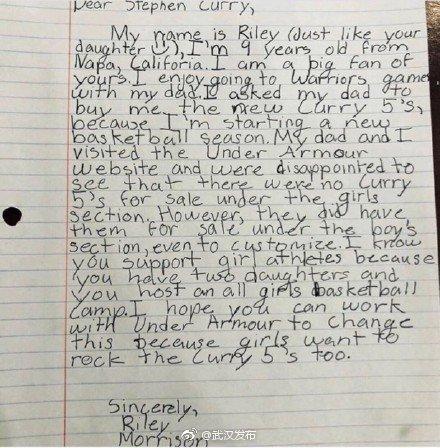 Dear Stephen Curry,
My name is Riley (Just like your
daughter ☺), I'm 9 years old from
Napa, Califoria. I am a big fan of
yours. I enjoy going to Warriors game
with my dad. I asked my dad to
buy me the new Curry 5's,
because I'm starting a new
basketball season. My dad and I
visited the Under Armour
website and were disappointed to
see that there were no Curry
5's for sale under the girls
section. However, they did have
them for sale under the boy's
section, even to customize. I know
you support girl athletes because
you have two daughters and
you host an all girls basketball
camp. I hope you can work
with Under Armour to change
this because girls want to
rock the Curry 5's too.
Sincerely,
Riley
Morrison
@武汉发布